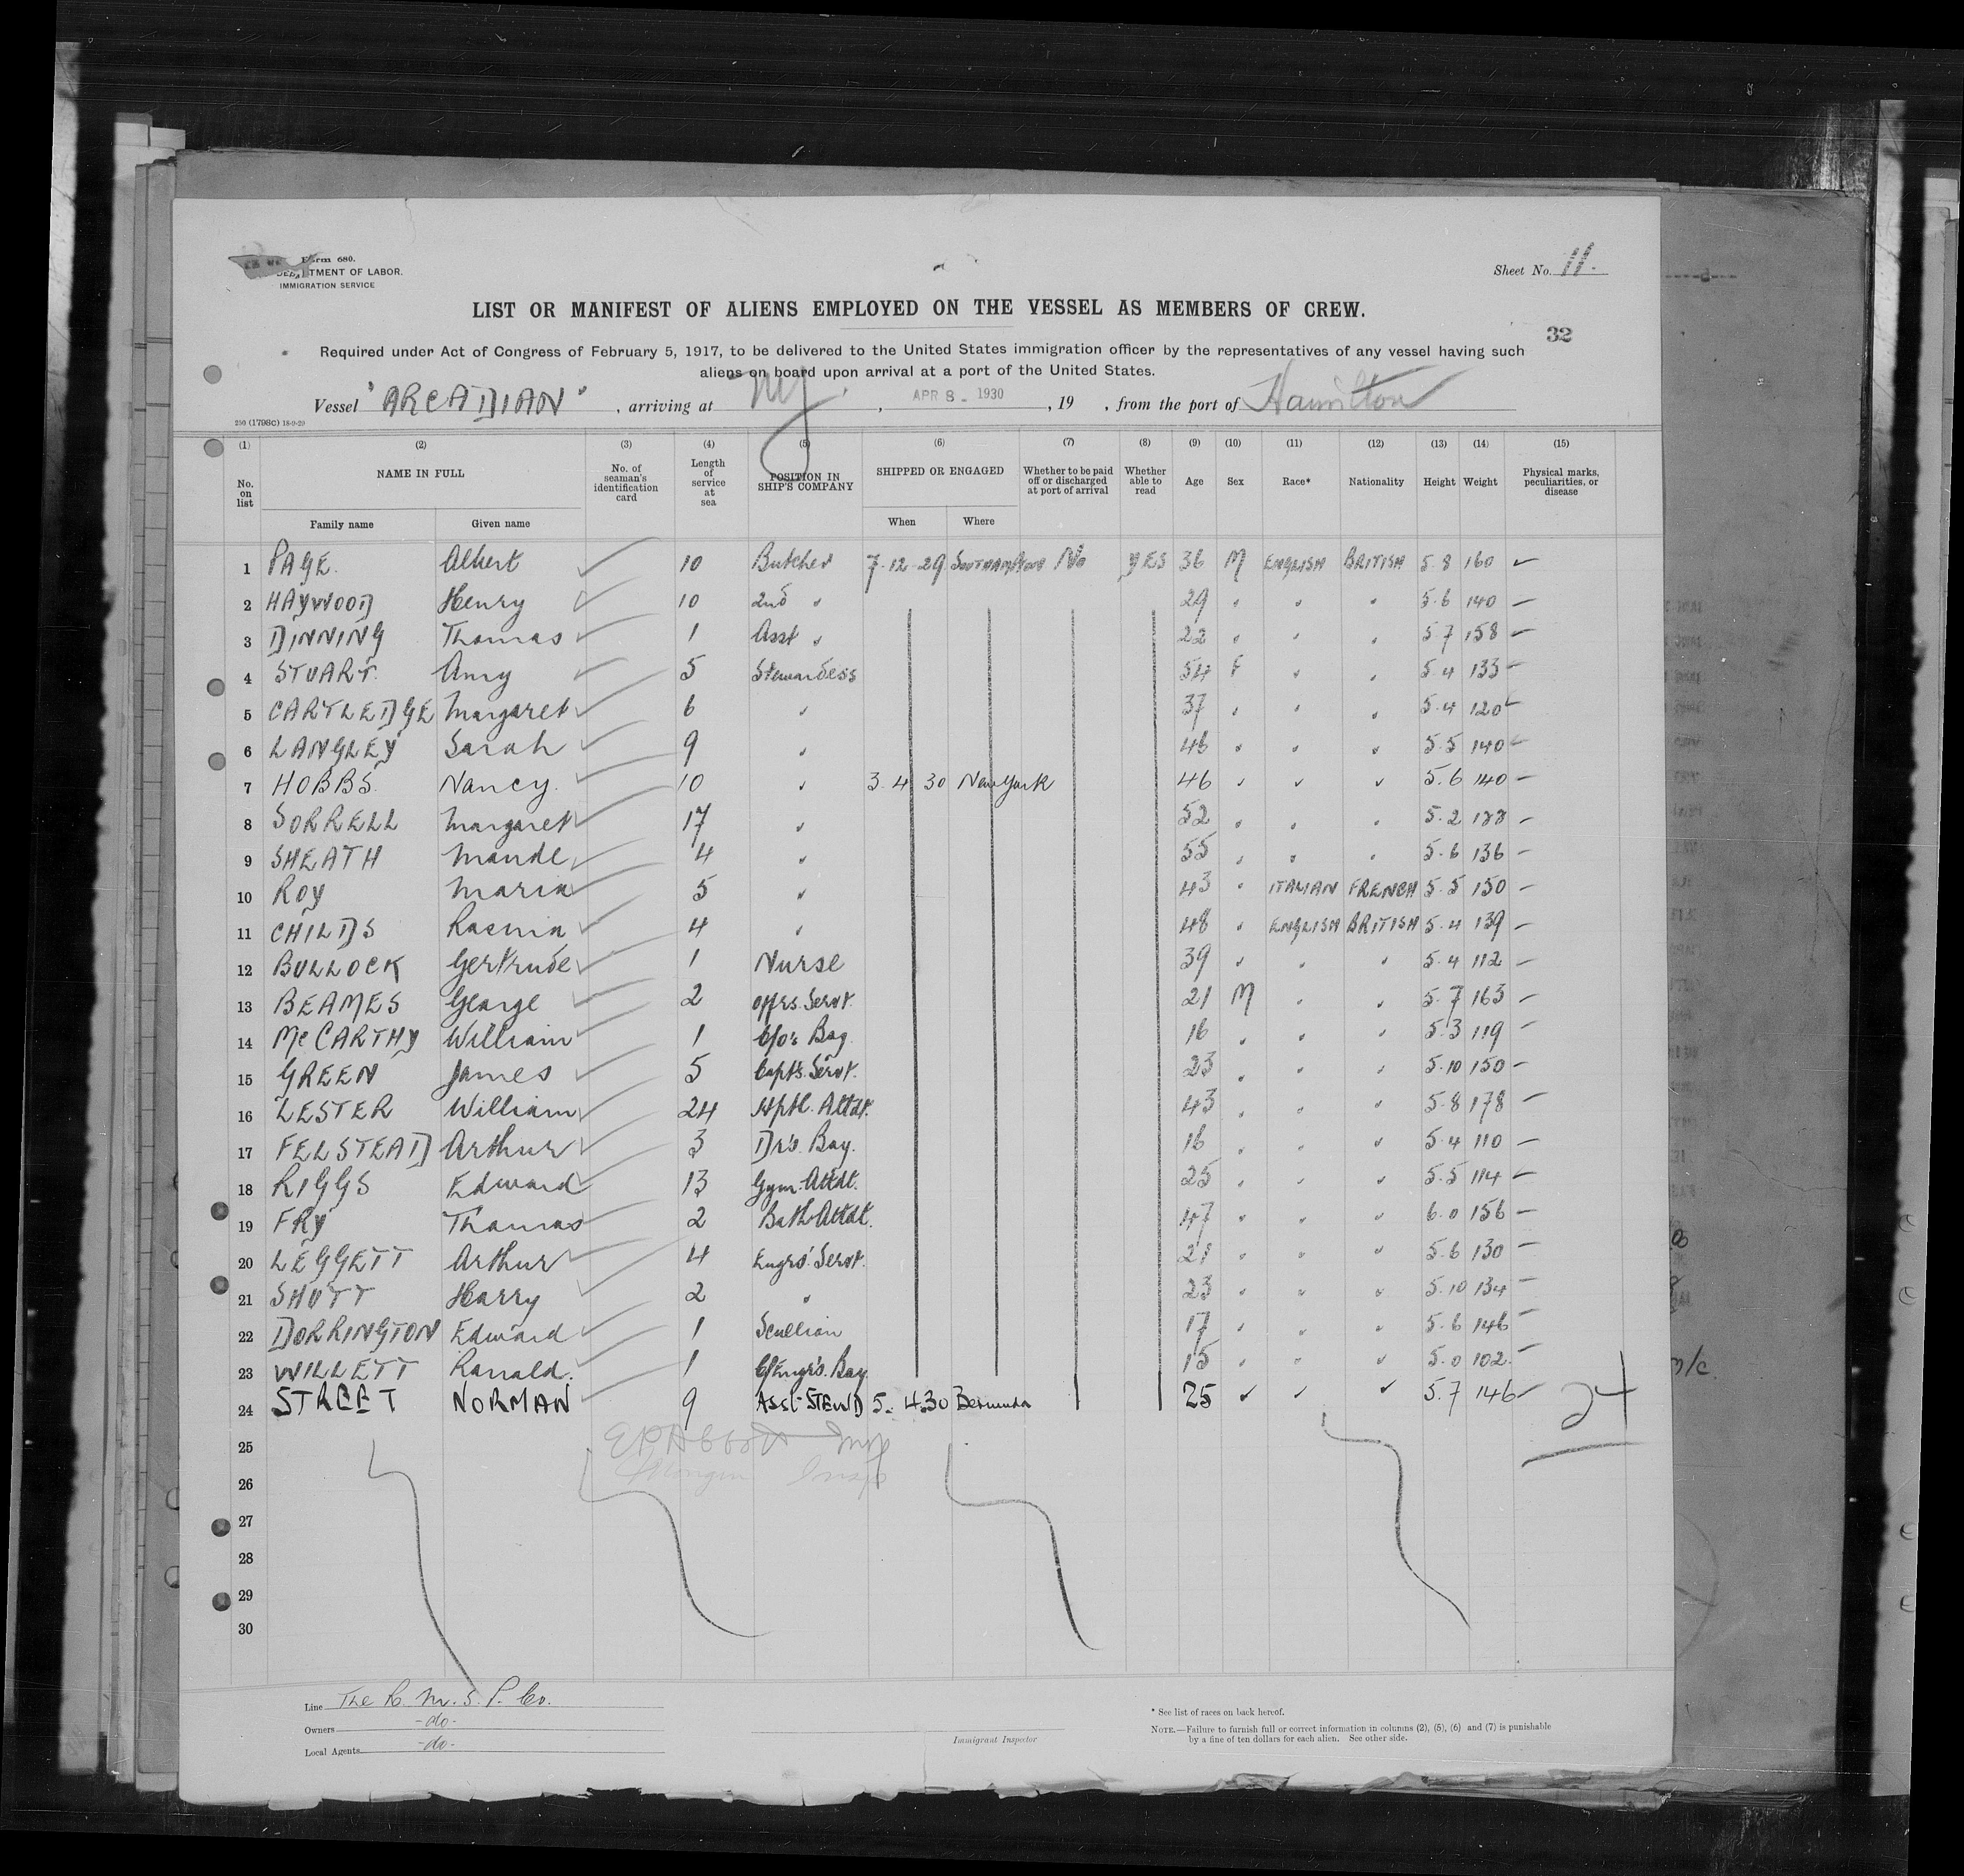 Form 680.
DEPARTMENT OF LABOR.
IMMIGRATION SERVICE
Sheet No. 11.
LIST OR MANIFEST OF ALIENS EMPLOYED ON THE VESSEL AS MEMBERS OF CREW.
32
Required under Act of Congress of February 5, 1917, to be delivered to the United States immigration officer by the representatives of any vessel having such
aliens on board upon arrival at a port of the United States.
Vessel "ARCADIAN", arriving at NY., APR 8 - 1930, 19 , from the port of Hamilton
250 (1798c) 18-9-29
(1) (2) (3) (4) (5) (6) (7) (8) (9) (10) (11) (12) (13) (14) (15)
No. on list NAME IN FULL No. of seaman's identification card Length of service at sea POSITION IN SHIP'S COMPANY SHIPPED OR ENGAGED Whether to be paid off or discharged at port of arrival Whether able to read Age Sex Race* Nationality Height Weight Physical marks, peculiarities, or disease
Family name Given name When Where
1 PAGE. Albert 10 Butcher 7-12-29 SOUTHAMPTON No YES 36 M ENGLISH BRITISH 5 8 160
2 HAYWOOD Henry 10 2nd " 29 " " " 5.6 140
3 DINNING Thomas 1 Asst " 22 " " " 5 7 158
4 STUART. Amy 5 Stewardess 54 F " " 5.4 133
5 CARTLEDGE Margaret 6 " 37 " " " 5.4 120
6 LANGLEY Sarah 9 " 46 " " " 5.5 140
7 HOBBS Nancy. 10 " 3. 4 30 New York 46 " " " 5.6 140
8 SORRELL Margaret 17 " 52 " " " 5.2
9 SHEATH Maude 4 " 55 " " " 5.6 136
10 ROY Maria 5 " 43 " ITALIAN FRENCH 5.5 150
11 CHILDS 4 " 48 " ENGLISH BRITISH 5.4 139
12 BULLOCK Gertrude 1 Nurse 39 " " " 5.4 112
13 BEAMES George 2 offrs. Servt. 21 M " " 5.7 163
14 McCARTHY William 1 C/o's Boy. 16 " " " 5.3 119
15 GREEN James 5 Capt's. Servt. 23 " " " 5.10 150
16 LESTER William 24 Hptl. Attdt. 43 " " " 5.8 178
17 FELSTEAD Arthur 3 Dr's. Boy. 16 " " " 5.4 110
18 RIGGS Edward 13 Gym Attdt. 25 " " " 5.5 114
19 FRY Thomas 2 Bath Attdt. 47 " " " 6.0 156
20 LEGGETT Arthur 4 Engrs' Servt. 21 " " " 5.6 130
21 SHUTT Harry 2 " 23 " " " 5.10 134
22 DORRINGTON Edward 1 Scullion 17 " " " 5.6 146
23 WILLETT Ronald. 1 C/Engr's. Boy. 15 " " " 5.0 102.
24 STREET NORMAN 9 ASST STEWD 5. 4.30 Bermuda 25 " " " 5.7 146
24
25
26
27
28
29
30
Line The R. M. S. P. Co.
Owners -do-
Local Agents -do-
Immigrant Inspector
* See list of races on back hereof.
NOTE.—Failure to furnish full or correct information in columns (2), (5), (6) and (7) is punishable
by a fine of ten dollars for each alien. See other side.